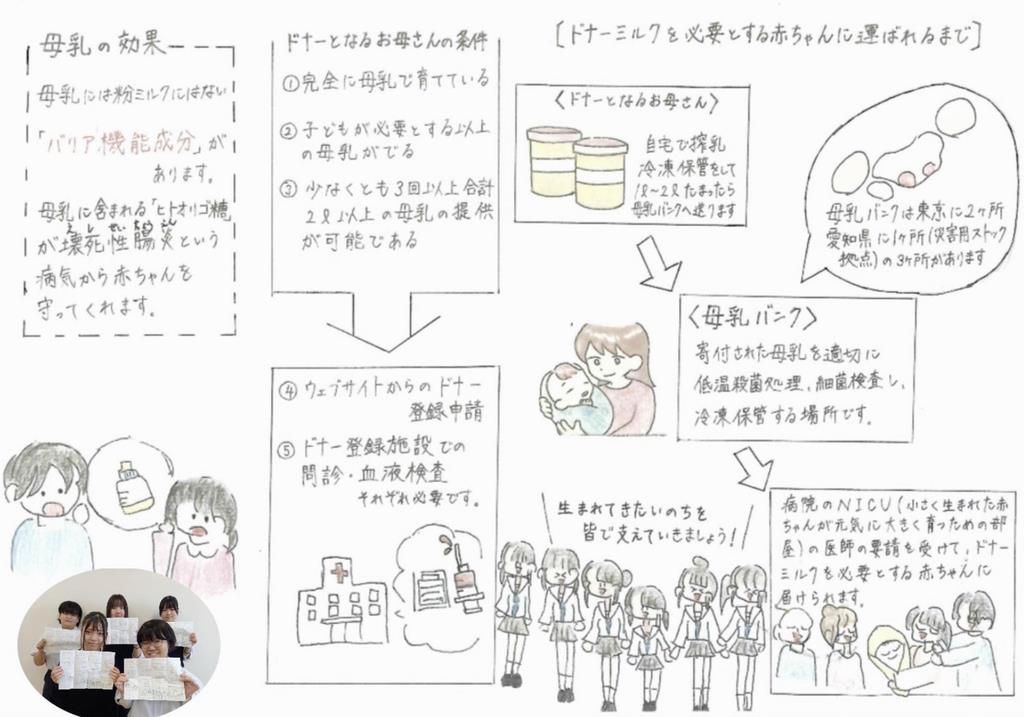 母乳の効果
母乳には粉ミルクにはない
「バリア機能成分」が
あります。
母乳に含まれる「ヒトオリゴ糖」
が壊死性腸炎という
えしせいちょうえん
病気から赤ちゃんを
守ってくれます。
ドナーとなるお母さんの条件
①完全に母乳で育てている
②子どもが必要とする以上
の母乳がでる
③少なくとも3回以上合計
2ℓ以上の母乳の提供
が可能である
④ウェブサイトからのドナー
登録申請
⑤ドナー登録施設での
問診・血液検査
それぞれ必要です。
[ドナーミルクを必要とする赤ちゃんに運ばれるまで]
〈ドナーとなるお母さん〉
自宅で搾乳
冷凍保管をして
1ℓ~2ℓたまったら
母乳バンクへ送ります
母乳バンクは東京に2ヶ所
愛知県に1ヶ所(災害用ストック
拠点)の3ヶ所があります
〈母乳バンク〉
寄付された母乳を適切に
低温殺菌処理、細菌検査し、
冷凍保管する場所です。
生まれてきたいのちを
皆で支えていきましょう!
病院のNICU(小さく生まれた赤
ちゃんが元気に大きく育つための部
屋)の医師の要請を受けて、ドナー
ミルクを必要とする赤ちゃんに
届けられます。